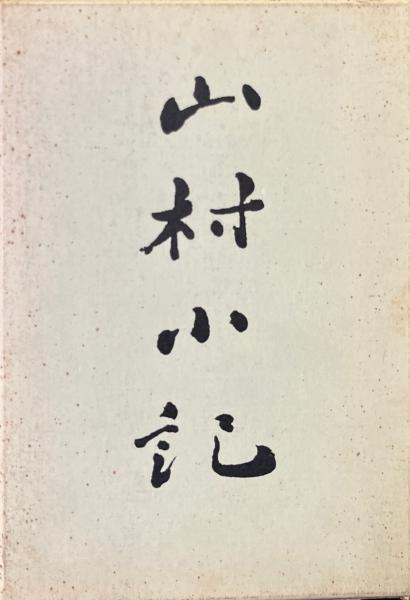 山村小記